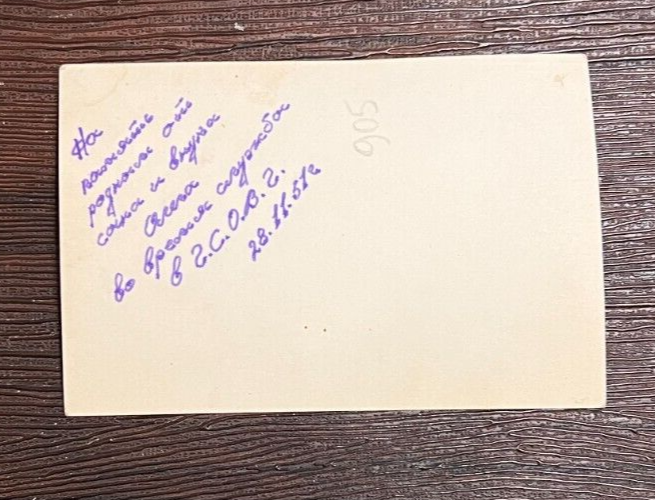 На
память
родным от
сына и внука
Олега
во время служба
в Г.С.О.В.Г.
28.11.51г
905